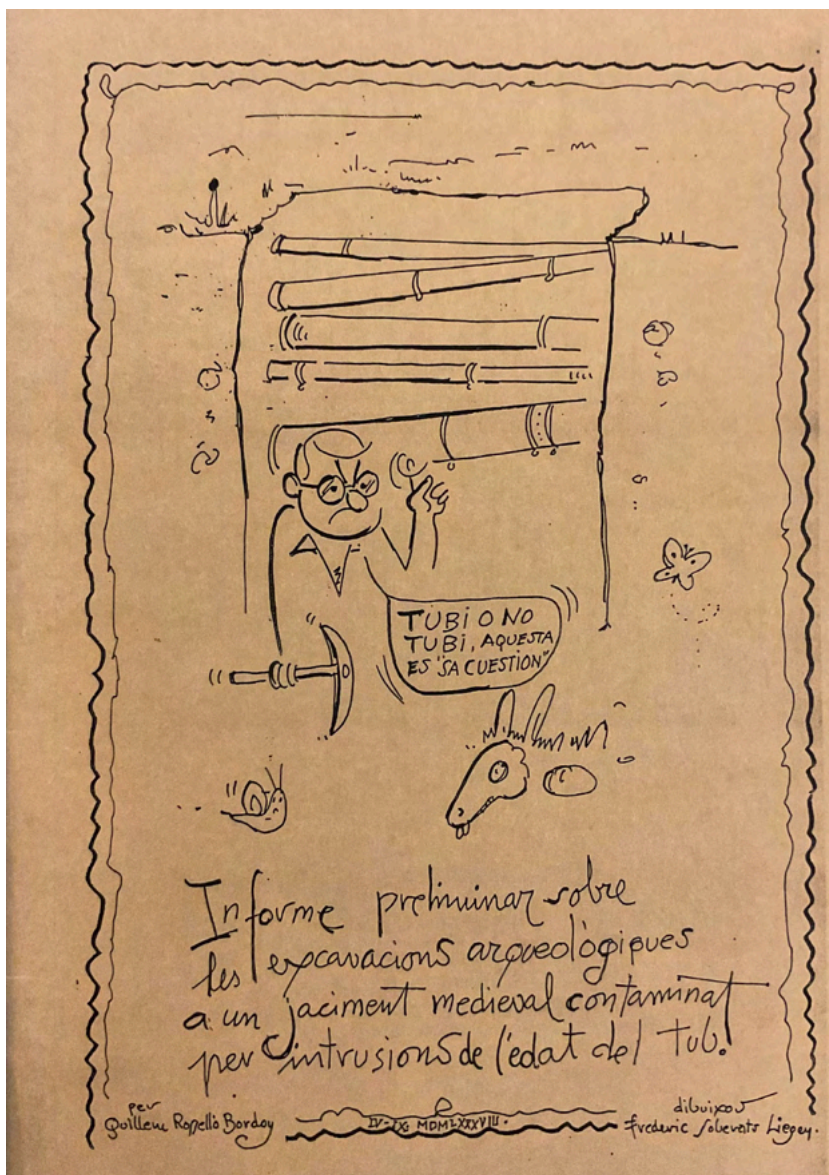 TUBI O NO
TUBI, AQUESTA
ES "SA CUESTION"
Informe preliminar sobre
les excavacions arqueològiques
a un jaciment medieval contaminat
per intrusions de l'edat del tub.
per
Guillem Rosselló Bordoy
IV-IX. MDMLXXXVIII.
dibuixos
Frederic Soberats Liegey.